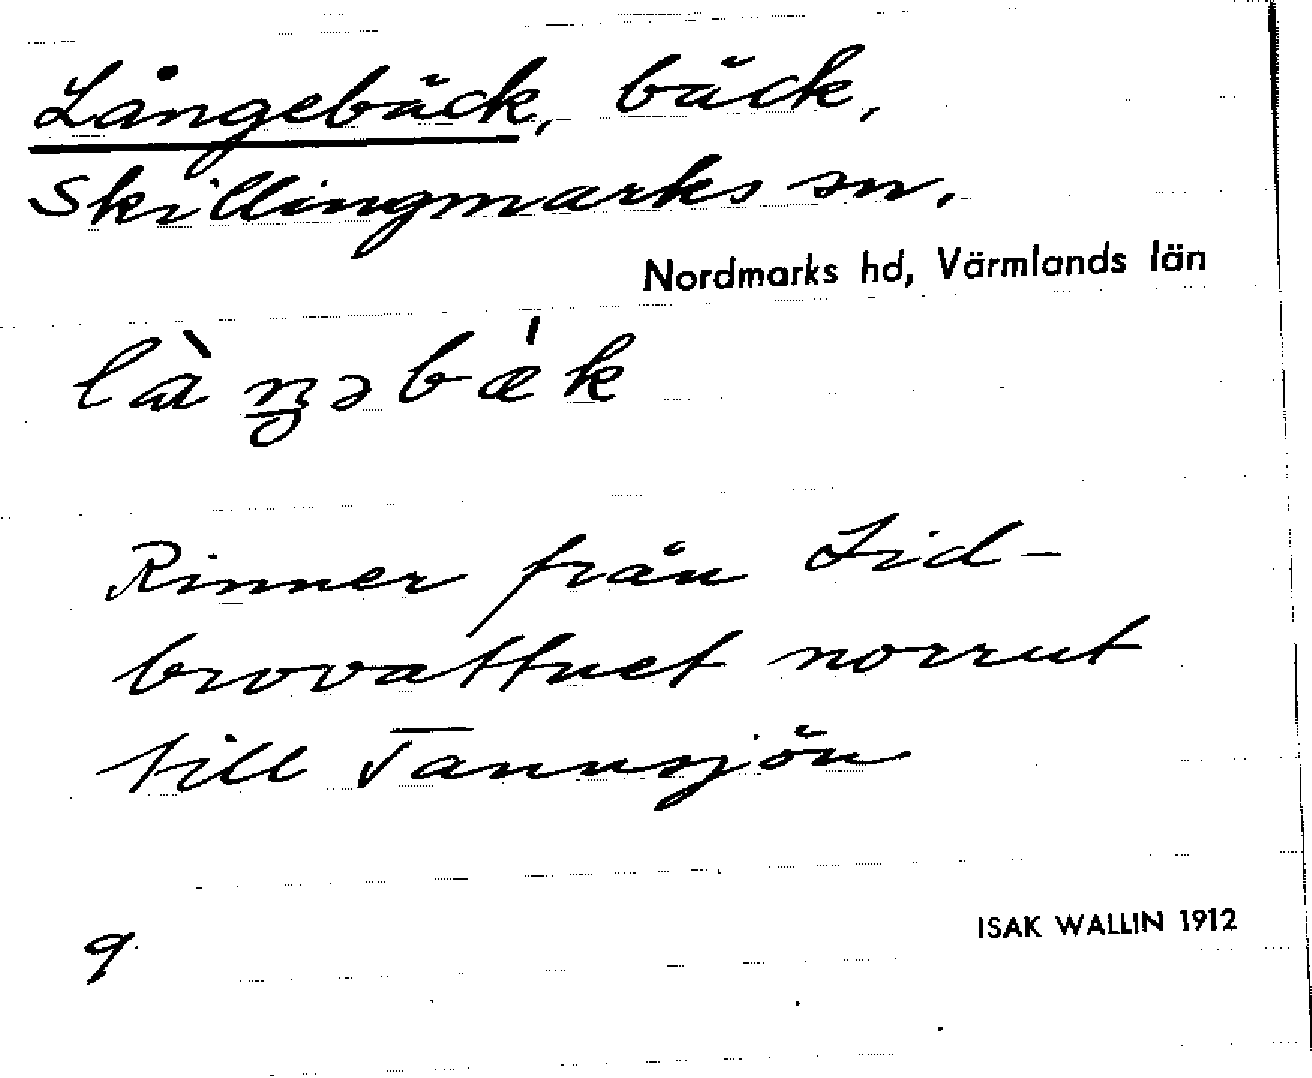 Långebäck, bäck,
Skillingmarks sn.
Nordmarks hd, Värmlands län
là̀ŋəbǽk
Rinner från Lid-
brovattnet norrut
till Tannsjön
9
ISAK WALLIN 1912